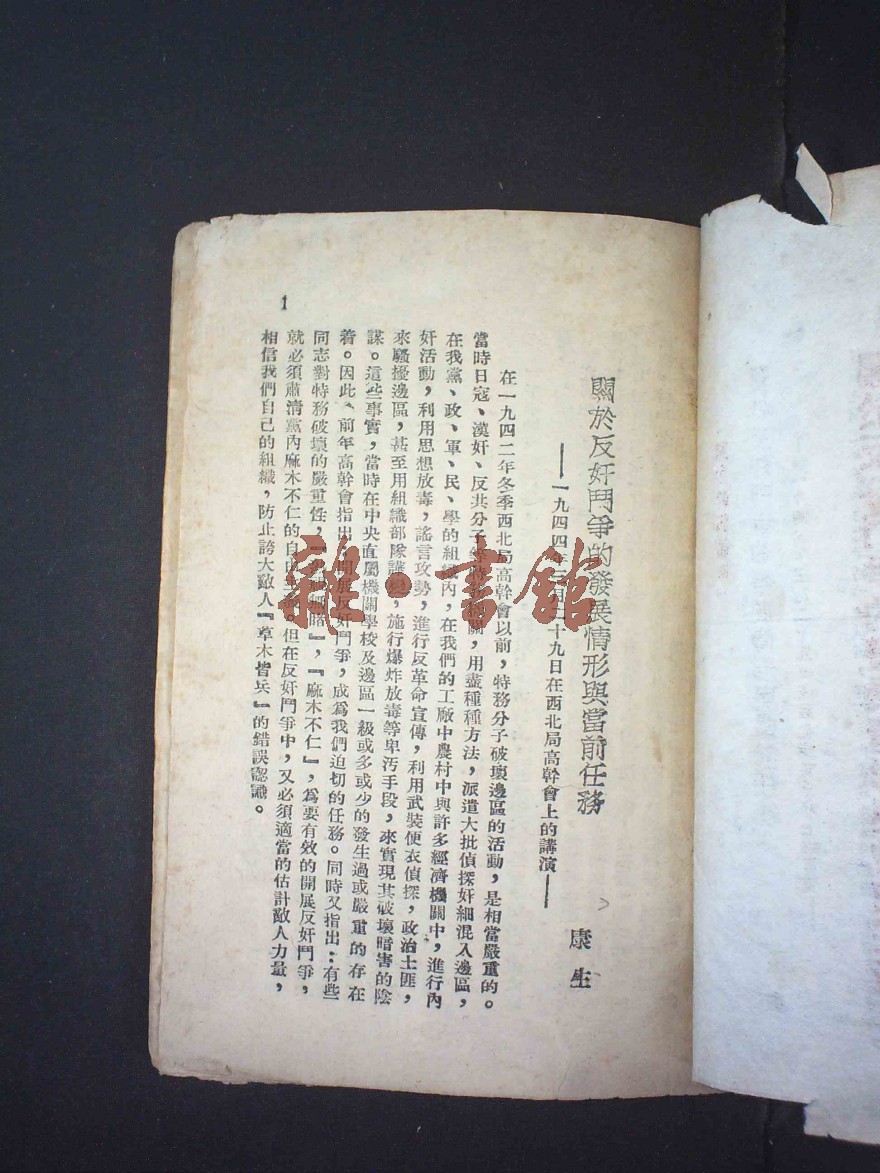 關於反奸鬥爭的發展情形與當前任務
——一九四四年三月二十九日在西北局高幹會上的講演——
康生
在一九四二年冬季西北局高幹會以前，特務分子破壞邊區的活動，是相當嚴重的。
當時日寇、漢奸、反共分子等特務機關，用盡種種方法，派遣大批偵探奸細混入邊區，
在我黨、政、軍、民、學的組織內，在我們的工廠中農村中與許多經濟機關中，進行內
奸活動，利用思想放毒，謠言攻勢，進行反革命宣傳，利用武裝便衣偵探，政治土匪，
來騷擾邊區，甚至用組織部隊譁變，施行爆炸放毒等卑污手段，來實現其破壞暗害的陰
謀。這些事實，當時在中央直屬機關學校及邊區一級或多或少的發生過或嚴重的存在
着。因此、前年高幹會指出：開展反奸鬥爭，成爲我們迫切的任務。同時又指出：有些
同志對特務破壞的嚴重性，『熟視無睹』，『麻木不仁』，爲要有效的開展反奸鬥爭，
就必須肅清黨內麻木不仁的自由主義。但在反奸鬥爭中，又必須適當的估計敵人力量，
相信我們自己的組織，防止誇大敵人『草木皆兵』的錯誤認識。
1
雜·書館